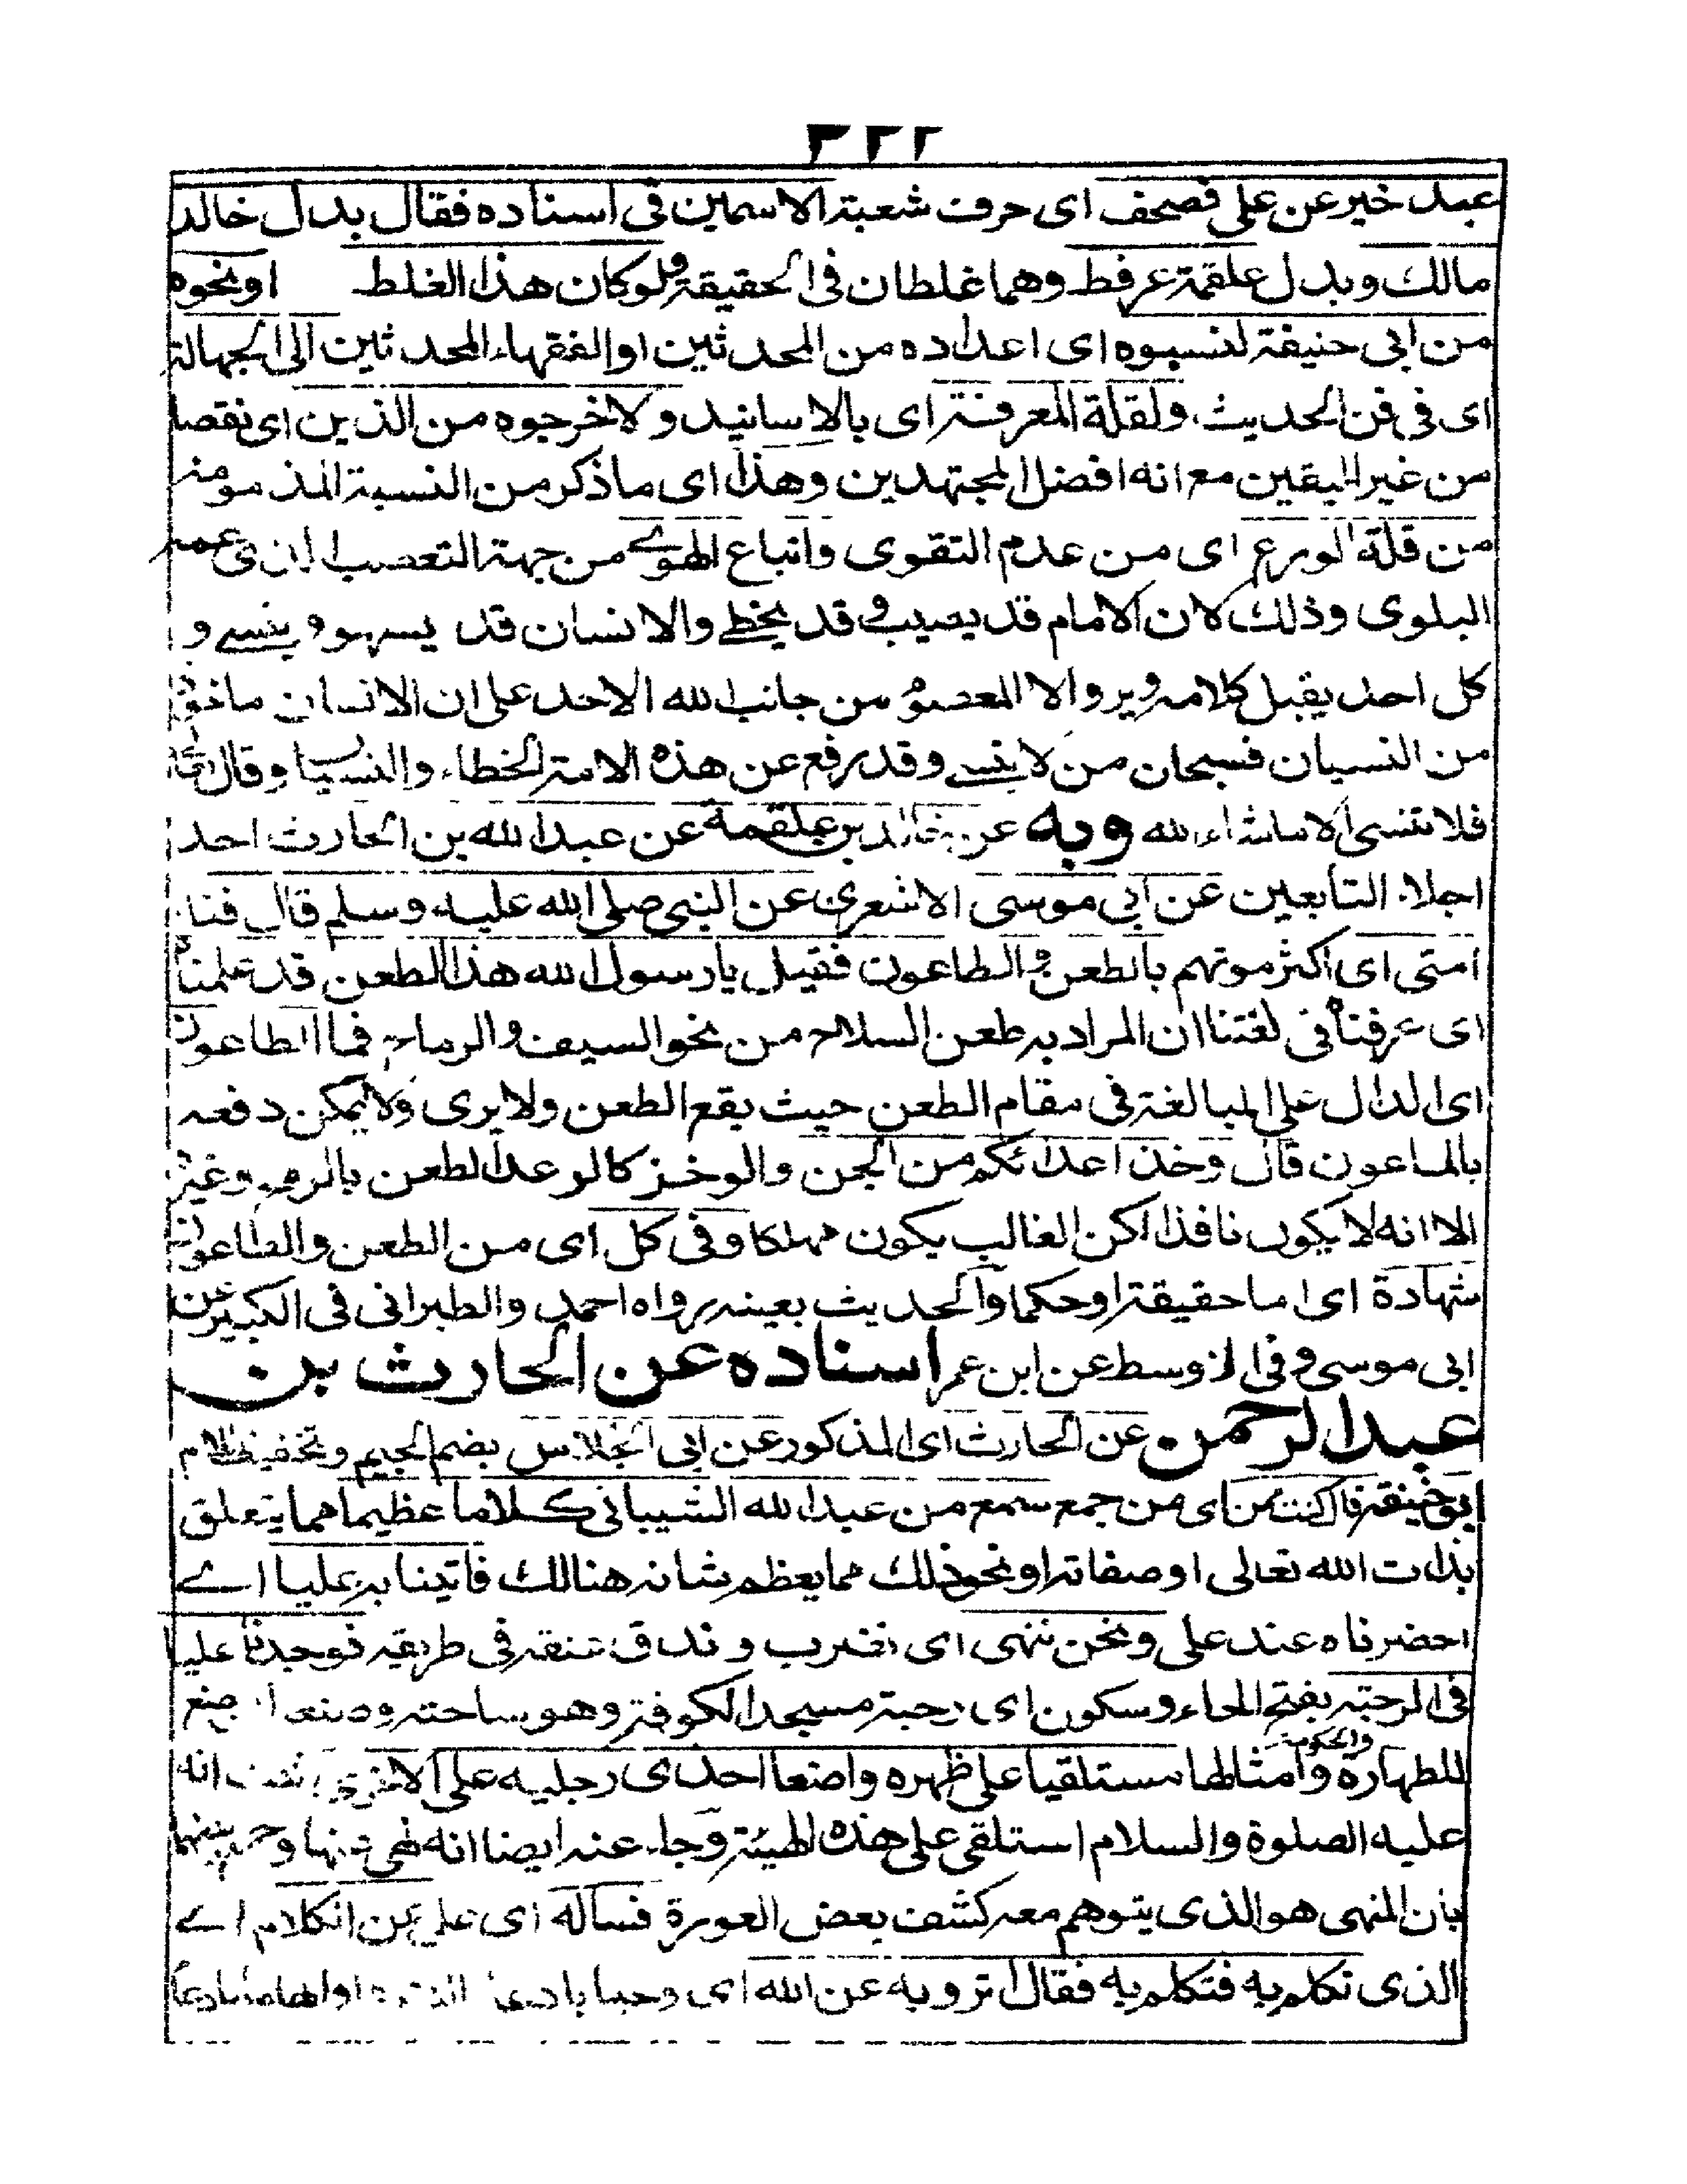 ٣٢٢
عبد خير عن على فصحف اى حرف شعبة الاسمين فى اسناده فقال بدل خالد
مالك وبدل علقمة عرفطة وهما غلطان فى الحقيقة ولو كان هذا الغلط او نحوه
من ابى حنيفة لنسبوه اى اعداده من المحدثين او الفقهاء المحدثين الى الجهالة
اى فى فن الحديث ولقلة المعرفة اى بالاسانيد ولاخرجوه من الدين اى نقصا
من غير اليقين مع انه افضل المجتهدين وهذا اى ما ذكر من النسبة المذمومة
من قلة الورع اى من عدم التقوى واتباع الهوى من جهة التعصب
البلوى وذلك لان الامام قد يصيب وقد يخطے والانسان قد يسهو وينسے و
كل احد يقبل كلامه ويرد الا المعصوم من جانب الله الاحد على ان الانسان ماخوذ
من النسيان فسبحان من لا ينسے وقد رفع عن هذه الامة الخطاء والنسيان وقال تعالى
فلا تنسى الا ما شاء الله وبه عن خالد بن علقمة عن عبد الله بن الحارث احد
اجلاء التابعين عن ابى موسى الاشعرى عن النبى صلى الله عليه وسلم قال فناء
امتى اى اكثر موتهم بالطعن والطاعون فقيل يا رسول الله هذا الطعن قد علمناه
اى عرفناه فى لغتنا ان المراد به طعن السلاح من نحو السيف والرماح فما الطاعون
اى الدال على المبالغة فى مقام الطعن حيث يقع الطعن ولا يرى ولا يمكن دفعه
بالماعون قال وخذ اعدائكم من الجن والوخز كالوعد الطعن بالرمح وغيره
الا انه لا يكون نافذا لكن الغالب يكون مهلكا وفى كل اى من الطعن والطاعون
شهادة اى اما حقيقة او حكما والحديث بعينه رواه احمد والطبرانى فى الكبير عن
ابى موسى وفى الاوسط عن ابن عمر اسناده عن الحارث بن
عبد الرحمن عن الحارث اى المذكور عن ابى الجلاس بضم الجيم وتخفيف اللام
ابو حنيفة قال كنت ممن اى من جمع سمع من عبد الله الشيبانى كلاما عظيما مما يتعلق
بذات الله تعالى او صفاته او نحو ذلك مما يعظم شانه هنالك فاتينا به عليا اے
احضرناه عند على ونحن ننهى اى نضرب وندق عنقه فى طريقه فوجدنا عليا
فى الرحبة بفتح الحاء وسكون اى رحبة مسجد الكوفة وهو ساحته
للطهارة والحكومة وامثالها مستلقيا على ظهره واضعا احدى رجليه على الاخرى انه
عليه الصلوة والسلام استلقى على هذه الهيئة وجاء عنه ايضا انه نهى عنها بينهما
بان المنهى هو الذى يتوهم معه كشف بعض العورة فساله اى على عن الكلام اے
الذى تكلم به فتكلم به فقال اترويه عن الله اى وحيا